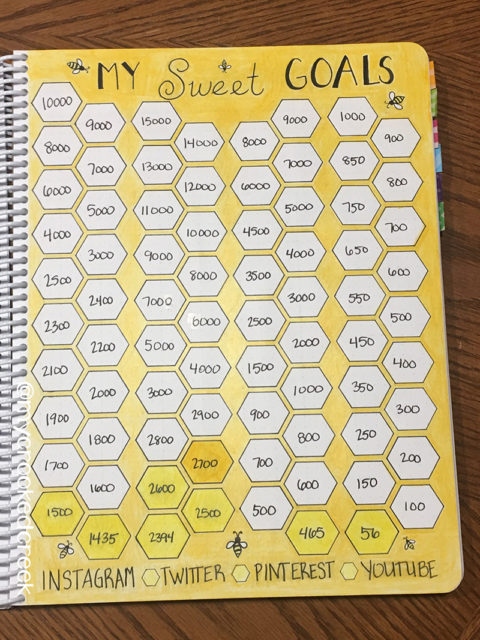 MY Sweet GOALS
10000 9000 15000 14000 8000 9000 1000 900
8000 7000 13000 12000 6000 7000 850 800
6000 5000 11000 10000 4500 5000 750 700
4000 3000 9000 8000 3500 4000 650 600
2500 2400 7000 6000 2500 3000 550 500
2300 2200 5000 4000 1500 2000 450 400
2100 2000 3000 2900 900 1000 350 300
1900 1800 2800 2700 700 800 250 200
1700 1600 2600 2500 500 600 150 100
1500 1435 2394 465 56
INSTAGRAM TWITTER PINTEREST YOUTUBE
@mycrookedcreek